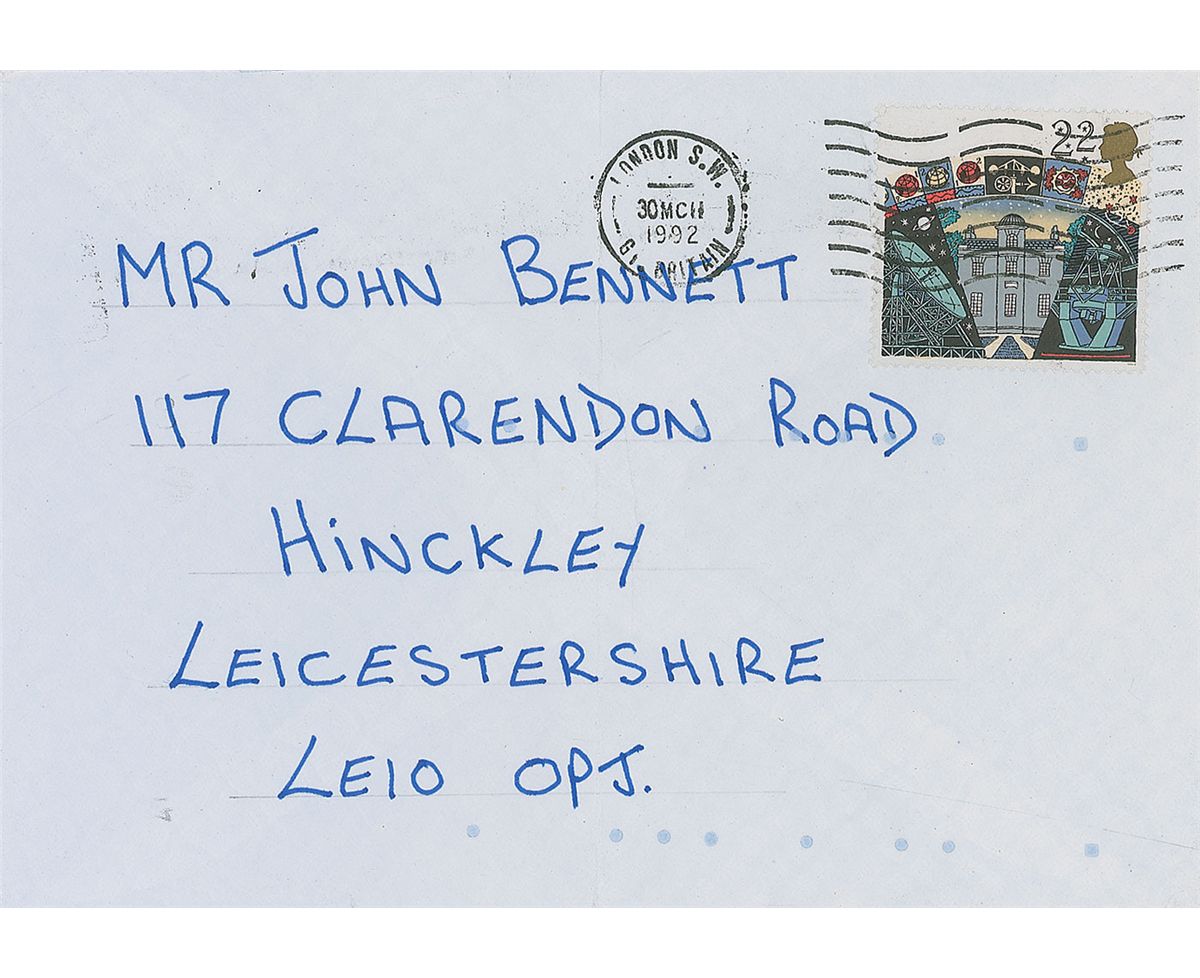 LONDON S.W.
30MCH
1992
GT. BRITAIN
22
MR JOHN BENNETT
117 CLARENDON ROAD
HINCKLEY
LEICESTERSHIRE
LE10 OPJ.